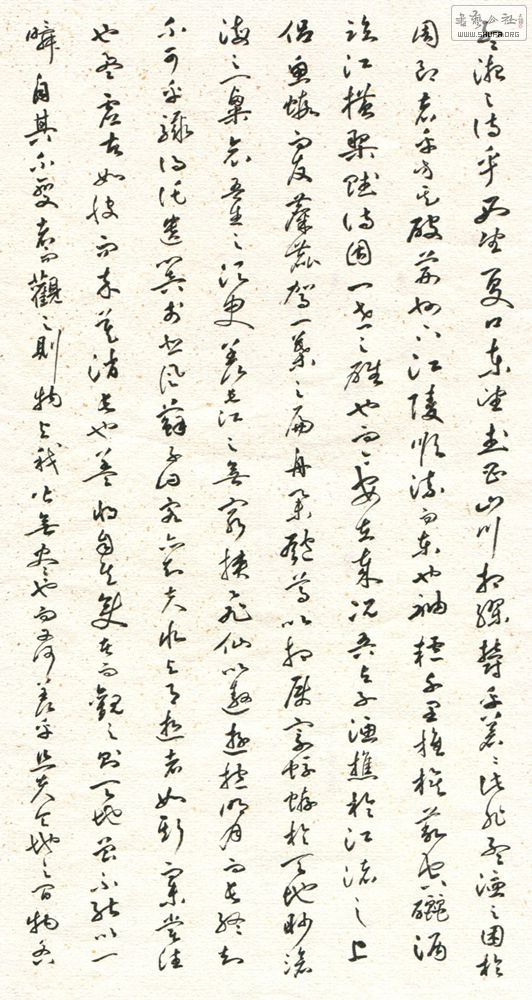 孟德之詩乎西望夏口東望武昌山川相繆鬱乎蒼蒼此非孟德之困於
周郎者乎方其破荊州下江陵順流而東也舳艫千里旌旗蔽空釃酒
臨江橫槊賦詩固一世之雄也而今安在哉況吾與子漁樵於江渚之上
侶魚蝦而友麋鹿駕一葉之扁舟舉匏尊以相屬寄蜉蝣於天地眇滄
海之一粟哀吾生之須臾羨長江之無窮挾飛仙以遨遊抱明月而長終知
不可乎驟得託遺響於悲風蘇子曰客亦知夫水與月逝者如斯未嘗往
也盈虛者如彼而卒莫消長也蓋將自其變者而觀之則天地曾不能以一
瞬自其不變者而觀之則物與我皆無盡也而又何羨乎且夫天地之間物各
書藝公社
WWW.SHUFA.ORG